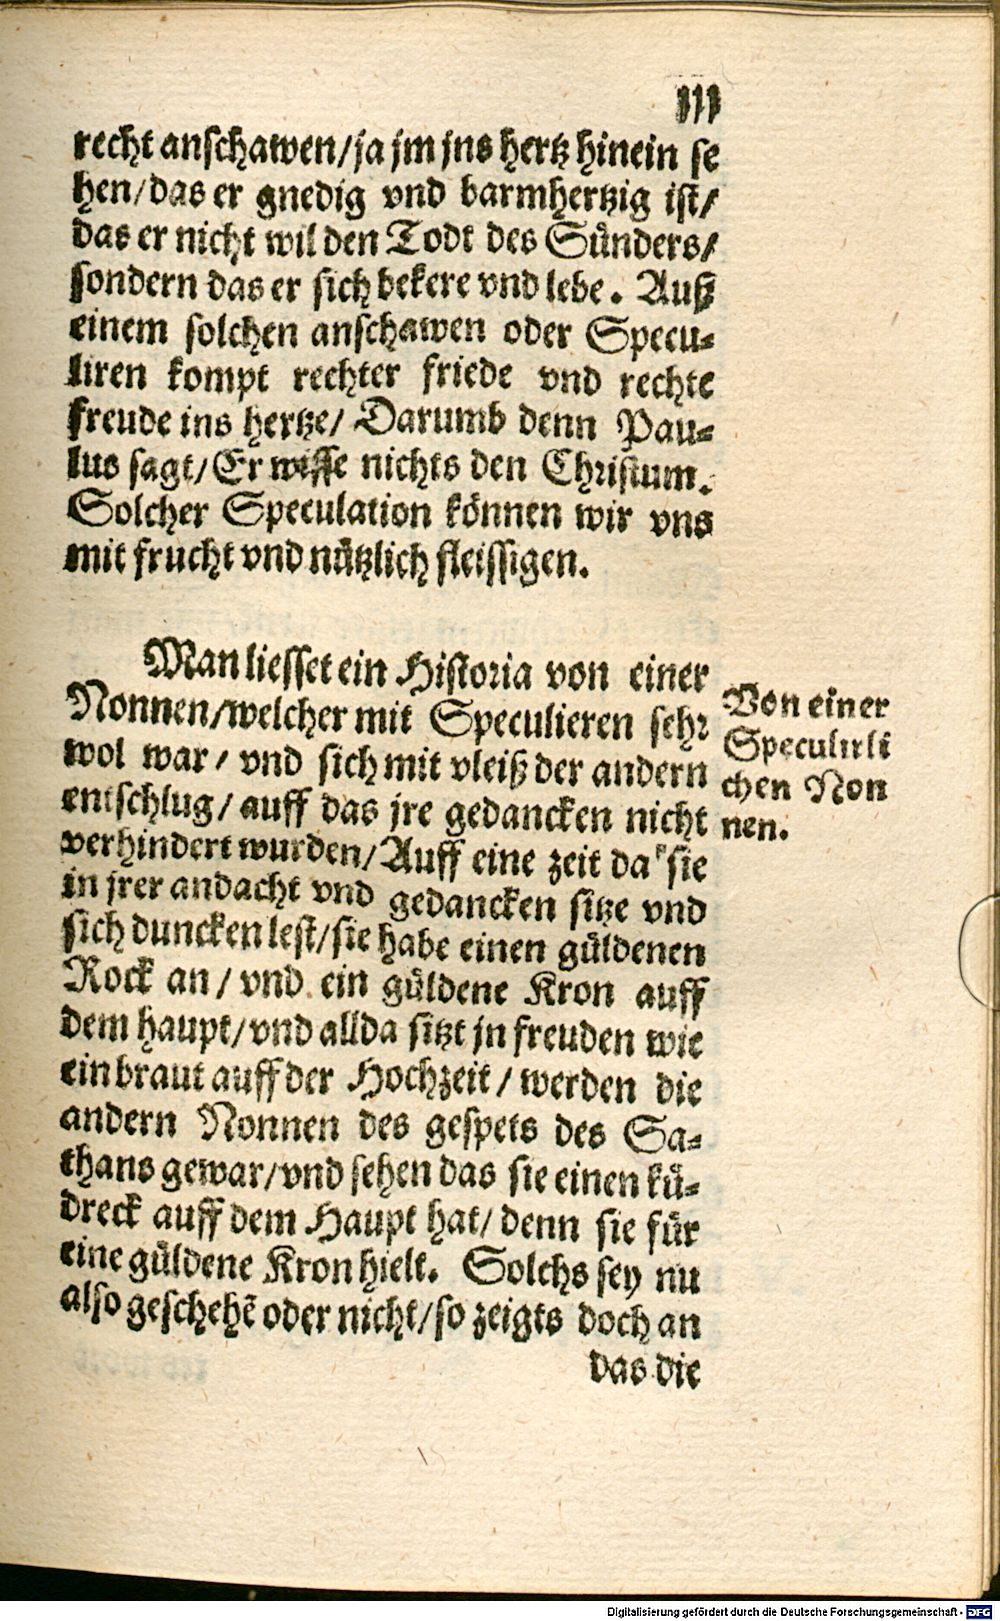 111
recht anschawen/ja jm jns hertz hinein se
hen/das er gnedig vnd barmhertzig ist/
das er nicht wil den Todt des Sünders/
sondern das er sich bekere vnd lebe. Auß
einem solchen anschawen oder Specu-
liren kompt rechter friede vnd rechte
freude ins hertze/ Darumb denn Pau-
lus sagt/Er wisse nichts den Christum.
Solcher Speculation können wir vns
mit frucht vnd nützlich fleissigen.
Man liesset ein Historia von einer
Nonnen/welcher mit Speculieren sehr
wol war/ vnd sich mit vleiß der andern
entschlug/ auff das jre gedancken nicht
verhindert wurden/Auff eine zeit da sie
in jrer andacht vnd gedancken sitze vnd
sich duncken lest/sie habe einen güldenen
Rock an/ vnd ein güldene Kron auff
dem haupt/vnd allda sitzt jn freuden wie
ein braut auff der Hochzeit/ werden die
andern Nonnen des gespets des Sa-
thans gewar/vnd sehen das sie einen kü-
dreck auff dem Haupt hat/ denn sie für
eine güldene Kron hielt. Solchs sey nu
also geschehē oder nicht/so zeigts doch an
das die
Von einer
Speculirli
chen Non
nen.
Digitalisierung gefördert durch die Deutsche Forschungsgemeinschaft - DFG